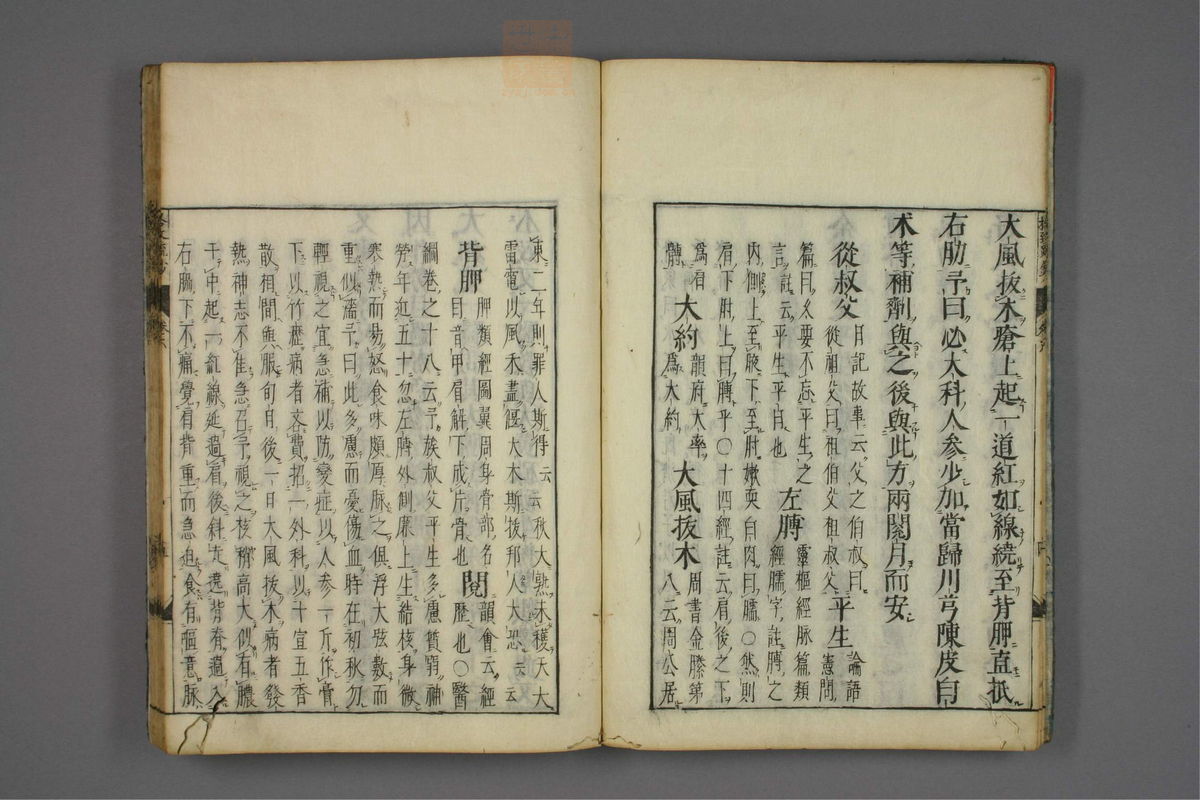 大風拔木瘡上起一道紅如線繞至背胛直抵
右肋予曰必大科人參少加當歸川芎陳皮白
朮等補劑與之後與此方兩閱月而安
從叔父 日記故事云父之伯叔曰
從祖父曰祖伯父祖叔父 平生 論語
憲問
篇曰久要不忘平生之
言註云平生平日也 左膊 靈樞經脉篇類
經臑字註膊之
內側上至腋下至肘嫩耎白肉曰臑○然則
肩下肘上曰膊乎○十四經註云肩後之下
爲肩
髆 大約 韻府大率
爲大約 大風拔木 周書金縢第
八云周公居
東二年則罪人斯得云云秋大熟未穫天大
雷電以風禾盡偃大木斯拔邦人大恐云云
背胛 胛類經圖翼周身骨部名
目音甲肩解下成片骨也 閱 韻會云經
歷也○醫
綱卷之十八云予族叔父平生多慮質窮神
勞年近五十忽左膊外側廉上生結核身微
寒熱而易怒食味頗厚脉之俱浮大弦數而
重似濇予曰此多慮而憂傷血時在初秋勿
輕視之宜急補以防變症以人參一斤作膏
下以竹瀝病者吝費招一外科以十宣五香
散相間與服旬日後一日大風拔木病者發
熱神志不隹急召予視之核稍高大似有膿
于中起一紅線延過肩後斜走遶背脊過入
右脇下不痛覺肩背重而急迫食有嘔意脉